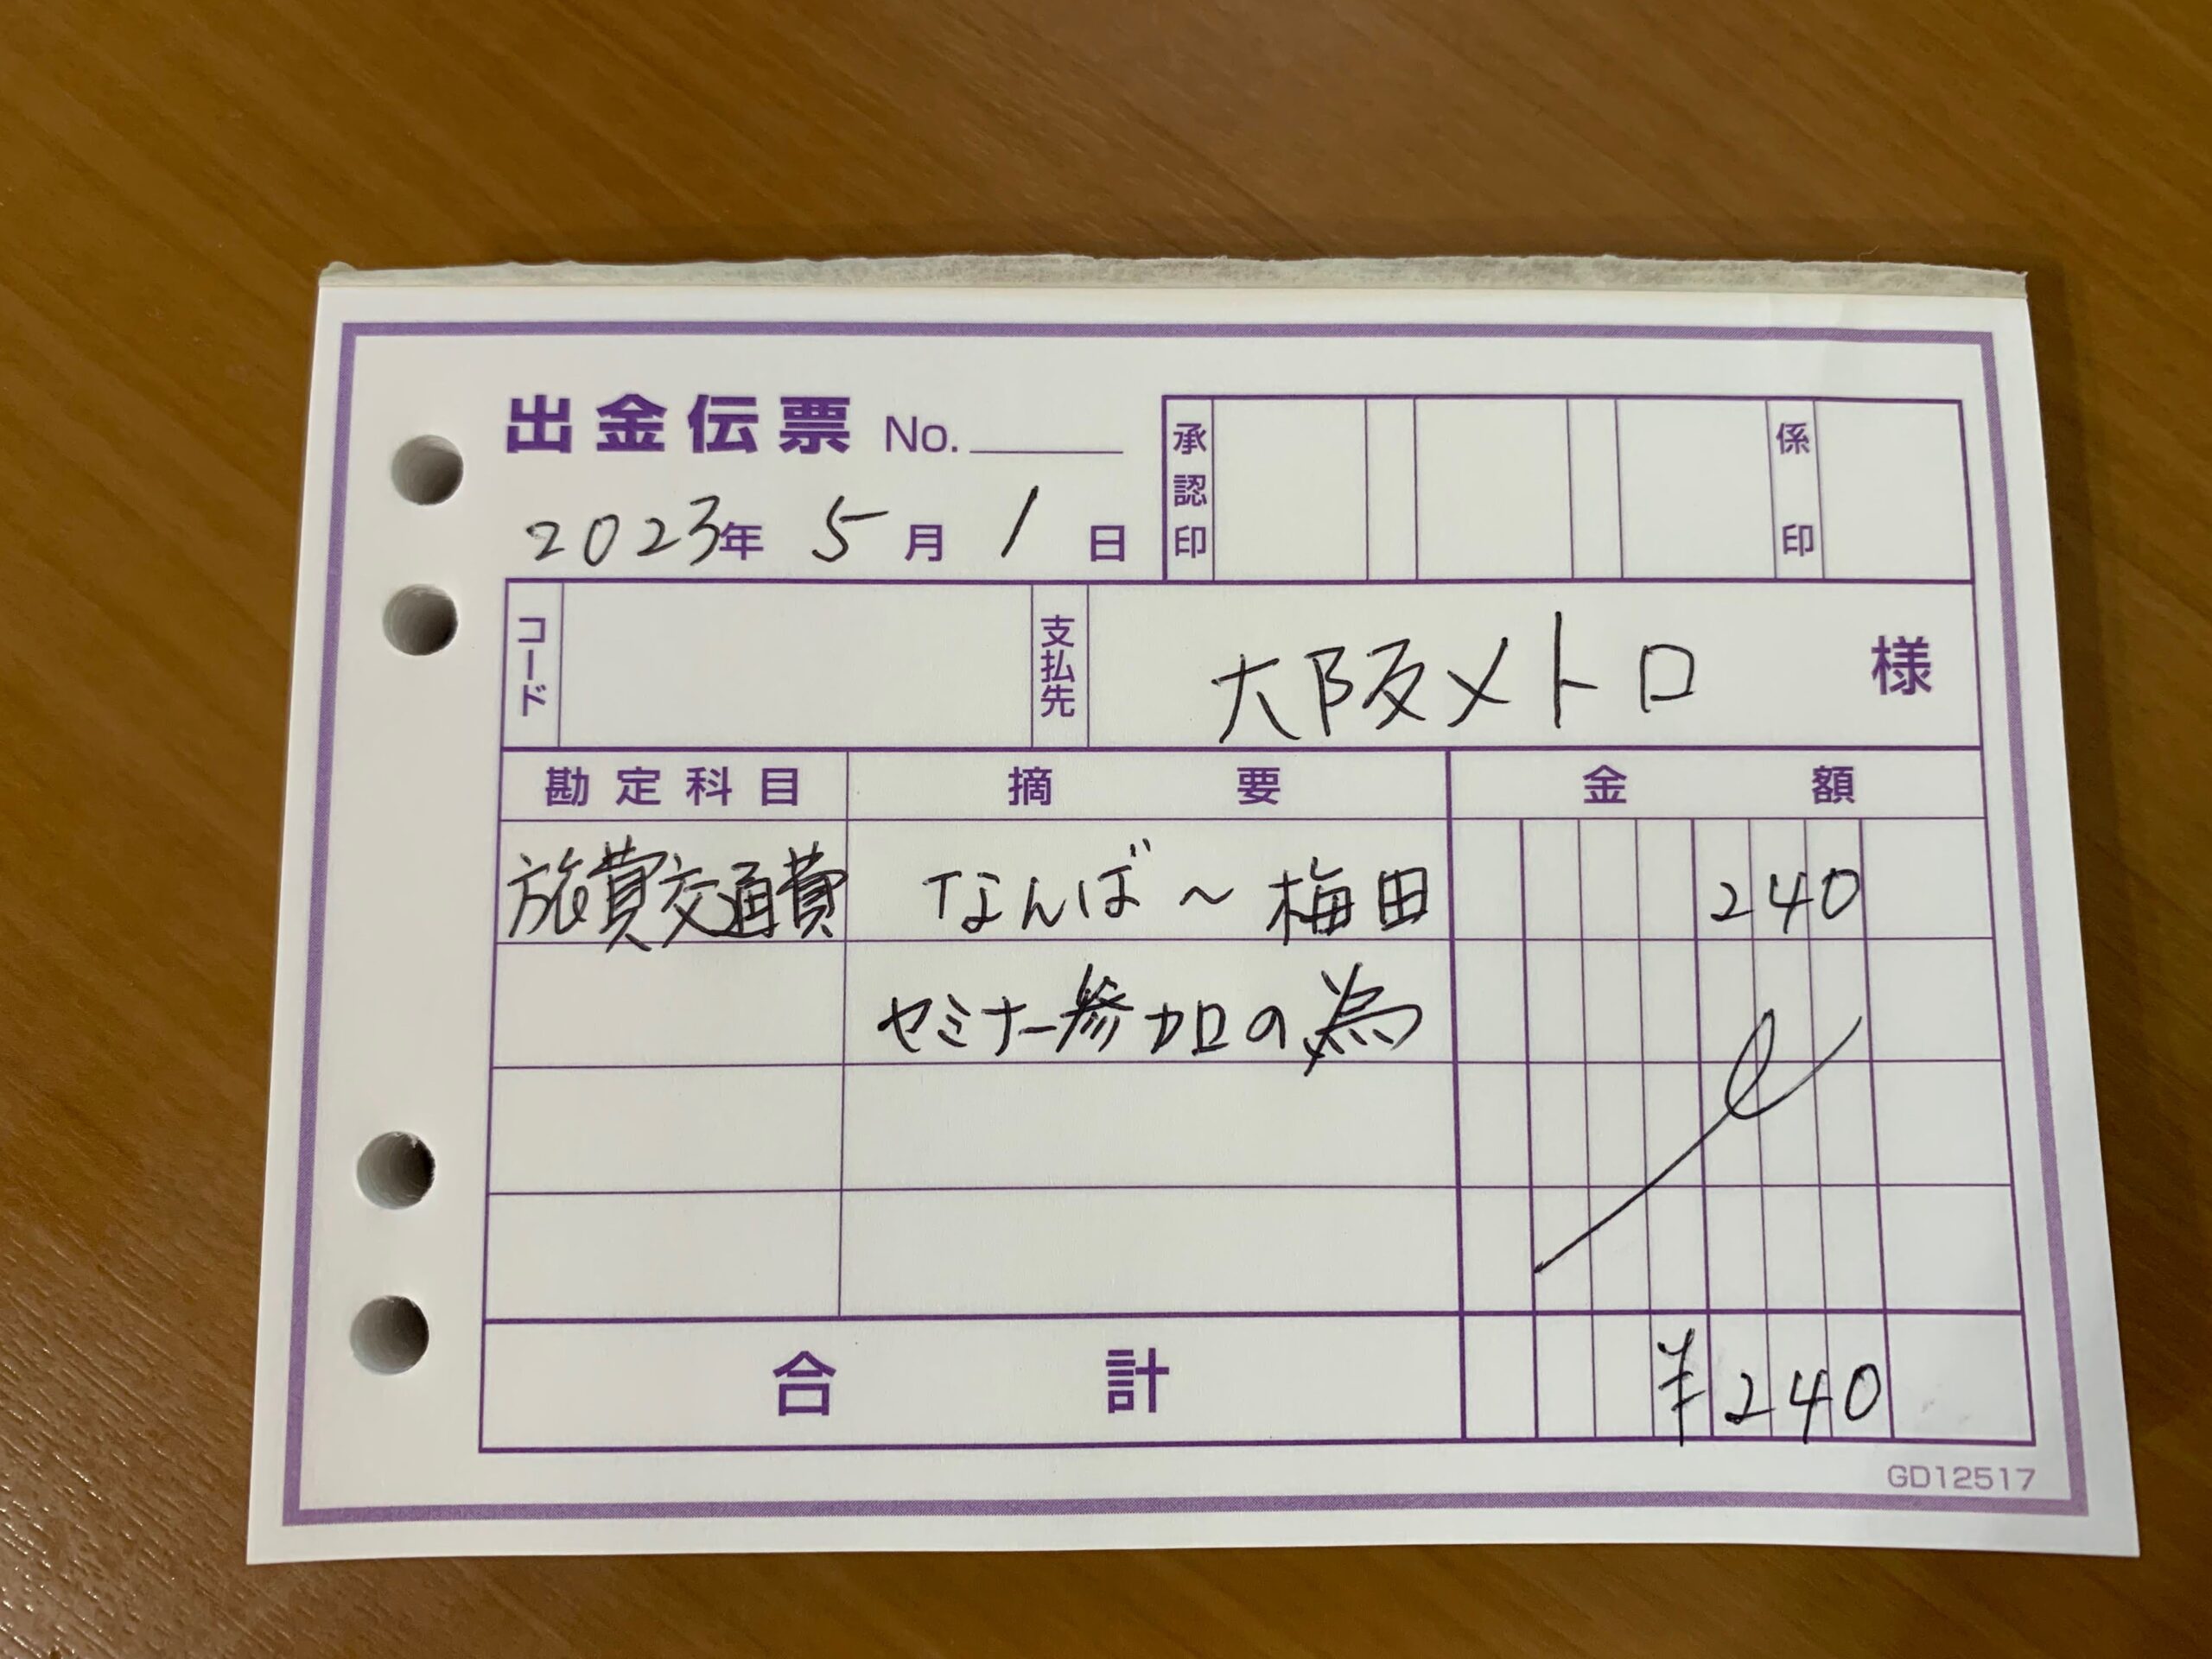 出金伝票 No.
承認印
係印
2023年 5月 1日
コード
支払先
大阪メトロ 様
勘定科目 摘要 金額
旅費交通費 なんば～梅田 240
セミナー参加の為
合計 ¥240
GD12517